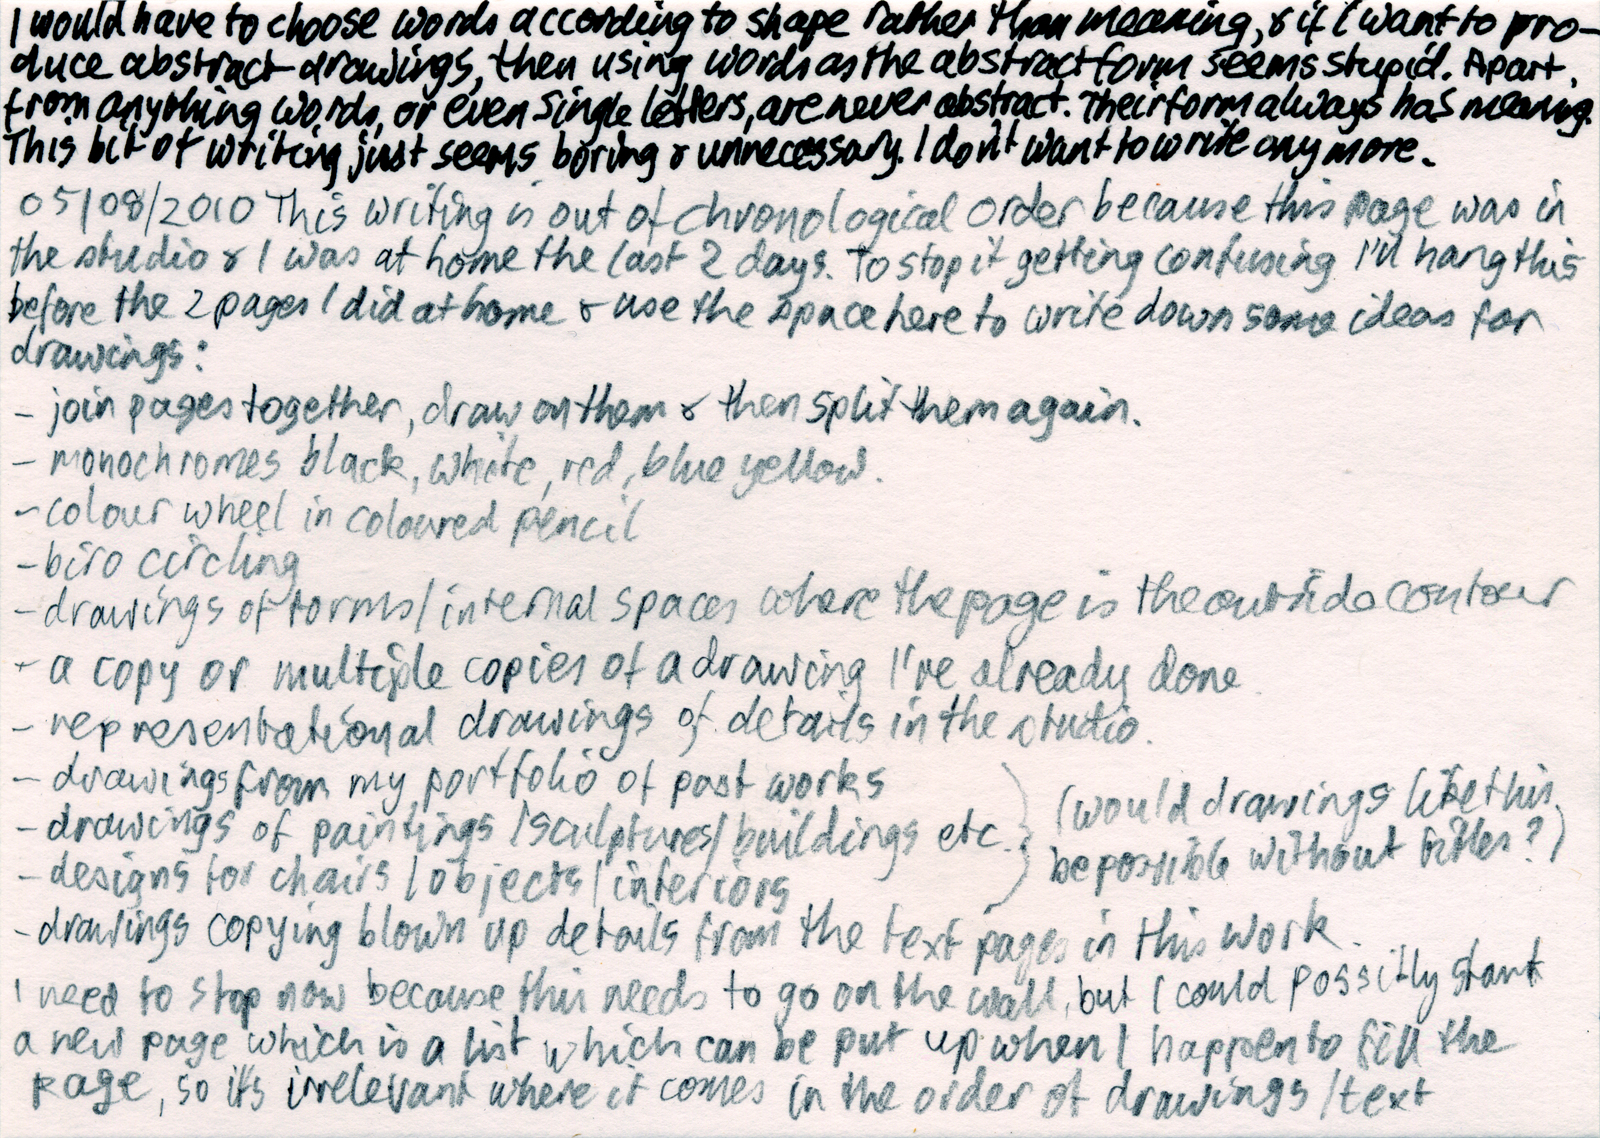 I would have to choose words according to shape rather than meaning, & if I want to pro-
duce abstract drawings, then using words as the abstract form seems stupid. Apart
from anything words, or even single letters, are never abstract. Their form always has meaning.
This bit of writing just seems boring & unnecessary. I don't want to write any more.
05/08/2010 This writing is out of chronological order because this page was in
the studio & I was at home the last 2 days. To stop it getting confusing I'll hang this
before the 2 pages I did at home & use the space here to write down some ideas for
drawings:
- join pages together, draw on them & then split them again.
- monochromes black, white, red, blue yellow.
- colour wheel in coloured pencil
- biro circling
- drawings of forms/internal spaces where the page is the outside contour
- a copy or multiple copies of a drawing I've already done
- representational drawings of details in the studio.
- drawings from my portfolio of past works
- drawings of paintings/sculptures/buildings etc. (would drawings like this
- designs for chairs/objects/interiors be possible without titles?)
- drawings copying blown up details from the text pages in this work.
I need to stop now because this needs to go on the wall, but I could possibly start
a new page which is a list which can be put up when I happen to fill the
page, so it's irrelevant where it comes in the order of drawings/text